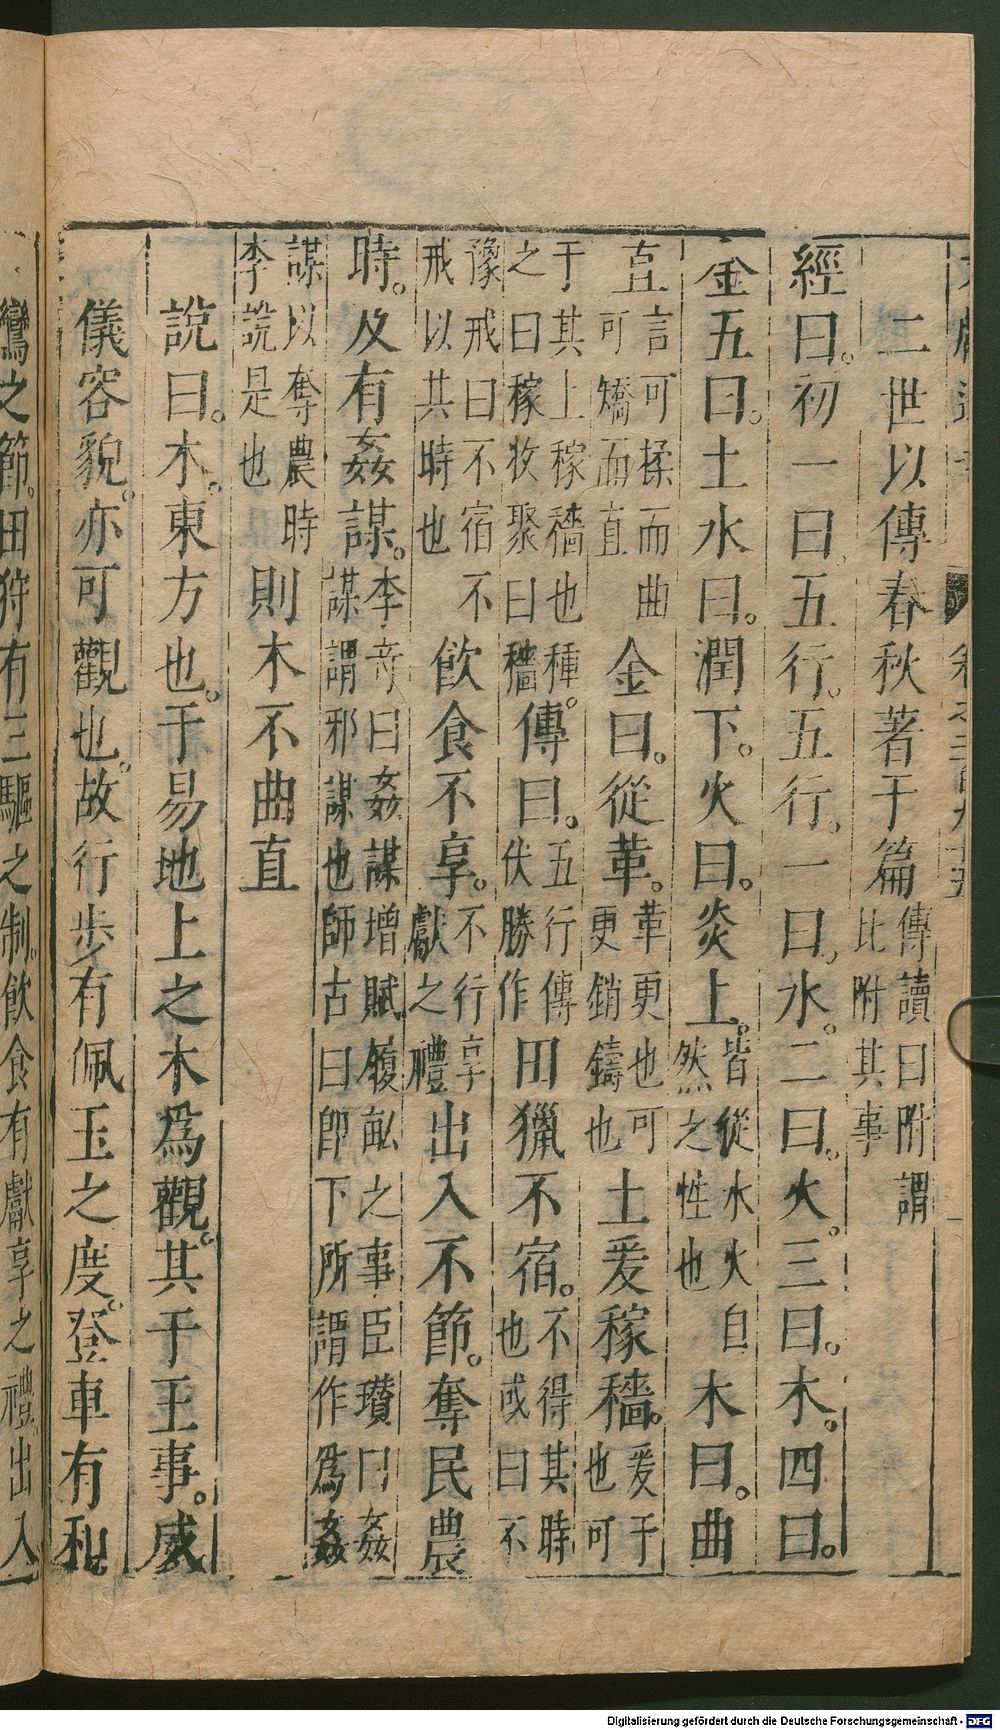 二世以傳春秋著于篇傳讀曰附謂比附其事
經曰。初一曰五行。五行。一曰。水。二曰。火。三曰。木。四曰。
金五曰。土水曰。潤下。火曰。炎上。皆從水火自然之性也木曰。曲
直言可揉而曲可矯而直金曰。從革。革更也可更銷鑄也土爰稼穡。爰于也可
于其上稼穡也種。之曰稼收聚曰穡傳曰。五行傳伏勝作田獵不宿。不得其時也或曰不
豫戒曰不宿不戒以其時也飲食不享。不行享獻之禮出入不節。奪民農
時。及有姦謀。李竒曰姦謀增賦履畝之事臣瓚曰姦謀謂邪謀也師古曰卽下所謂作爲姦
謀以奪農時李說是也則木不曲直
說曰。木。東方也。于易地上之木爲觀。其于王事。威
儀容貌。亦可觀也。故行步有佩玉之度。登車有和。
鸞之節。田狩有三驅之制。飲食有獻享之禮。出入
Digitalisierung gefördert durch die Deutsche Forschungsgemeinschaft - DFG